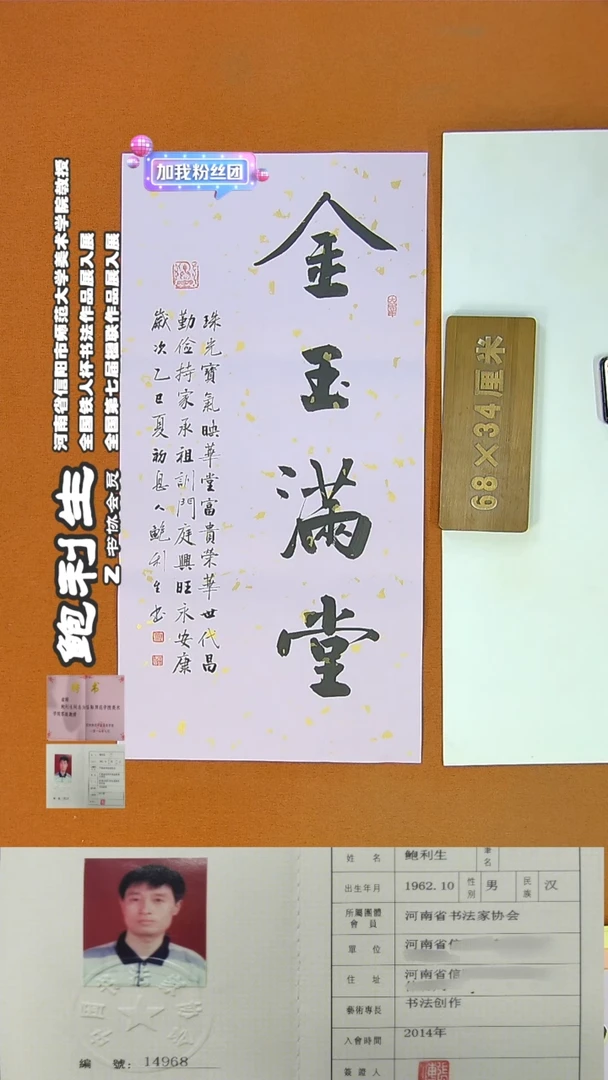 加我粉丝团
金玉滿堂
珠光寶氣映華堂富貴榮華世代昌
勤儉持家承祖訓門庭興旺永安康
歲次乙巳夏初息人鮑利生书
68×34厘米
河南省信阳市师范大学美术学院教授
全国铁人杯书法作品展入展
全国第七届楹联作品展入展
鲍利生
Z 书协会员
聘书
姓 名 鲍利生 筆名
出生年月 1962.10 性别 男 民族 汉
所屬團體會員 河南省书法家协会
單 位 河南省信
住 址 河南省信
藝術專長 书法创作
入會時間 2014年
簽證人
編 號: 14968